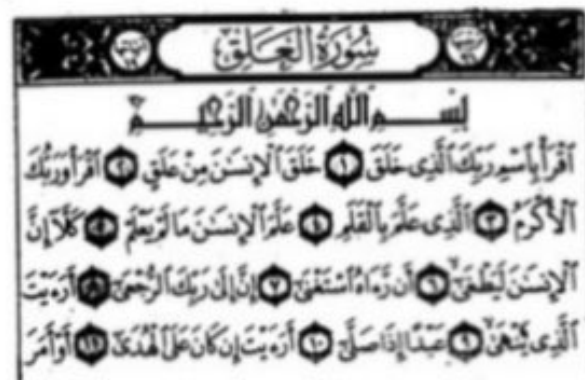 سُورَةُ الْعَلَقِ
بِسْمِ اللَّهِ الرَّحْمَٰنِ الرَّحِيمِ
اقْرَأْ بِاسْمِ رَبِّكَ الَّذِي خَلَقَ ١ خَلَقَ الْإِنسَٰنَ مِنْ عَلَقٍ ٢ اقْرَأْ وَرَبُّكَ
الْأَكْرَمُ ٣ الَّذِي عَلَّمَ بِالْقَلَمِ ٤ عَلَّمَ الْإِنسَٰنَ مَا لَمْ يَعْلَمْ ٥ كَلَّا إِنَّ
الْإِنسَٰنَ لَيَطْغَىٰ ٦ أَن رَّءَاهُ اسْتَغْنَىٰ ٧ إِنَّ إِلَىٰ رَبِّكَ الرُّجْعَىٰ ٨ أَرَءَيْتَ
الَّذِي يَنْهَىٰ ٩ عَبْدًا إِذَا صَلَّىٰ ١٠ أَرَءَيْتَ إِن كَانَ عَلَى الْهُدَىٰ ١١ أَوْ أَمَرَ